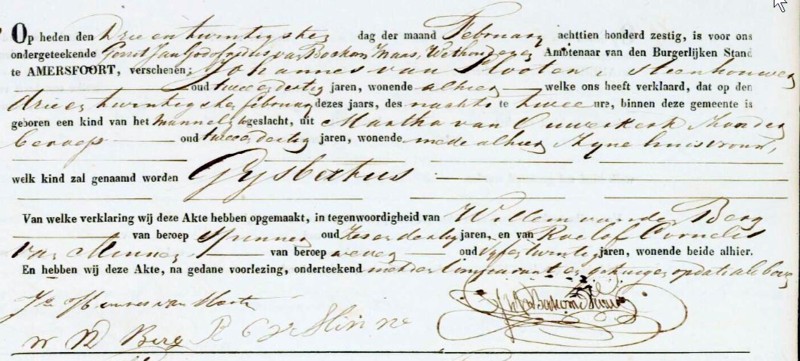 Op heden den Drie en twintigsten dag der maand February achttien honderd zestig, is voor ons
ondergeteekende Gerrit Jan Godefridus van Wethouder Ambtenaar van den Burgerlijken Stand
te AMERSFOORT, verschenen; Johannes van Slooten, steenhouwer
oud twee en dertig jaren, wonende alhier welke ons heeft verklaard, dat op den
drie en twintigsten february dezes jaars, des nachts te twee ure, binnen deze gemeente is
geboren een kind van het mannelijk geslacht, uit Martha van Ouwerkerk Zonder
beroep oud twee en dertig jaren, wonende mede alhier Zijne huisvrouw,
welk kind zal genaamd worden Gysbertus
Van welke verklaring wij deze Akte hebben opgemaakt, in tegenwoordigheid van Willem van den Berg
van beroep oud Zes en dertig jaren, en van Roelof Cornelis
van beroep wever oud vijf en twintig jaren, wonende beide alhier.
En hebben wij deze Akte, na gedane voorlezing, onderteekend met den Comparant en getuigen op dato als boven
W VD Berg R C